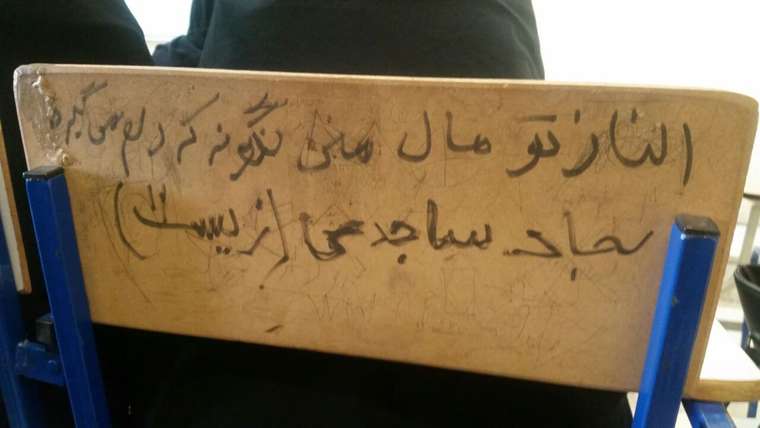 الناز تو مال منی نگو نه که دلم می گیره
سجاد ساجدی (زیست)